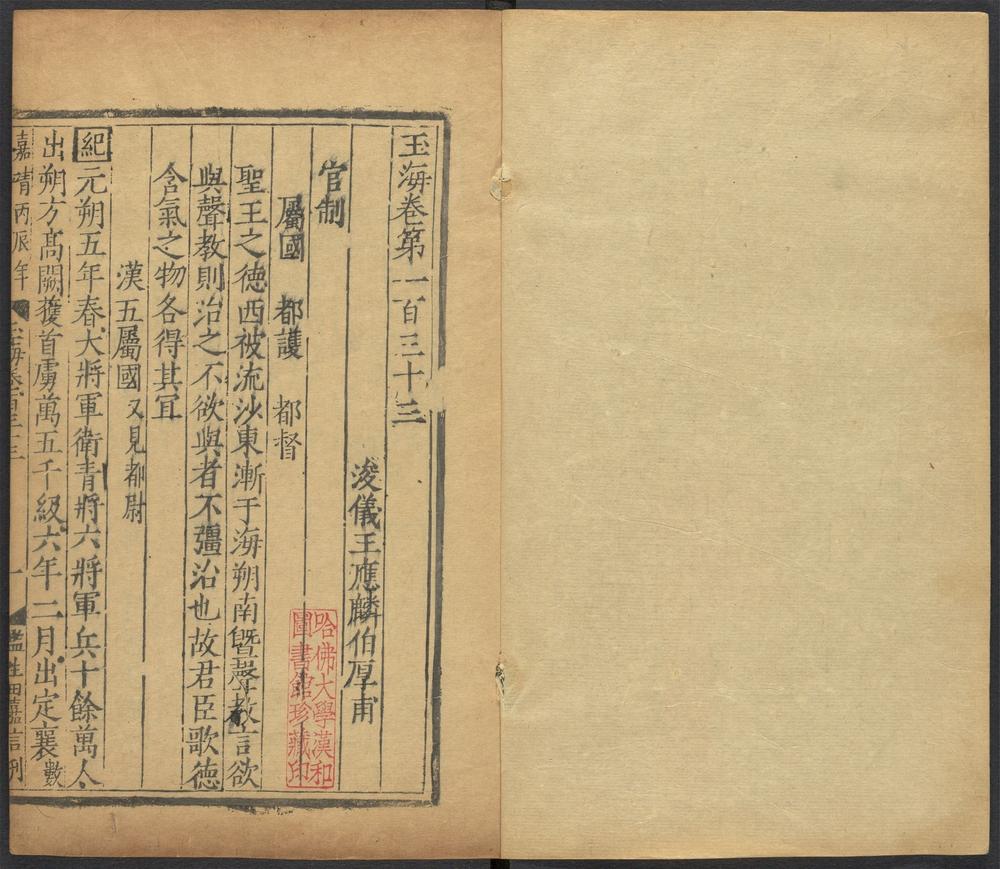 玉海卷第一百三十三
浚儀王應麟伯厚甫
官制
屬國 都護 都督
聖王之德西被流沙東漸于海朔南曁聲教言欲
與聲教則治之不欲與者不彊治也故君臣歌德
含氣之物各得其冝
漢五屬國又見都尉
紀元朔五年春大將軍衛青將六將軍兵十餘萬人
出朔方髙闕獲首虜萬五千級六年二月出定襄數
嘉靖丙辰年 玉海卷百三十三 一 監生田嘉言刋
哈佛大學漢和
圖書館珍藏印